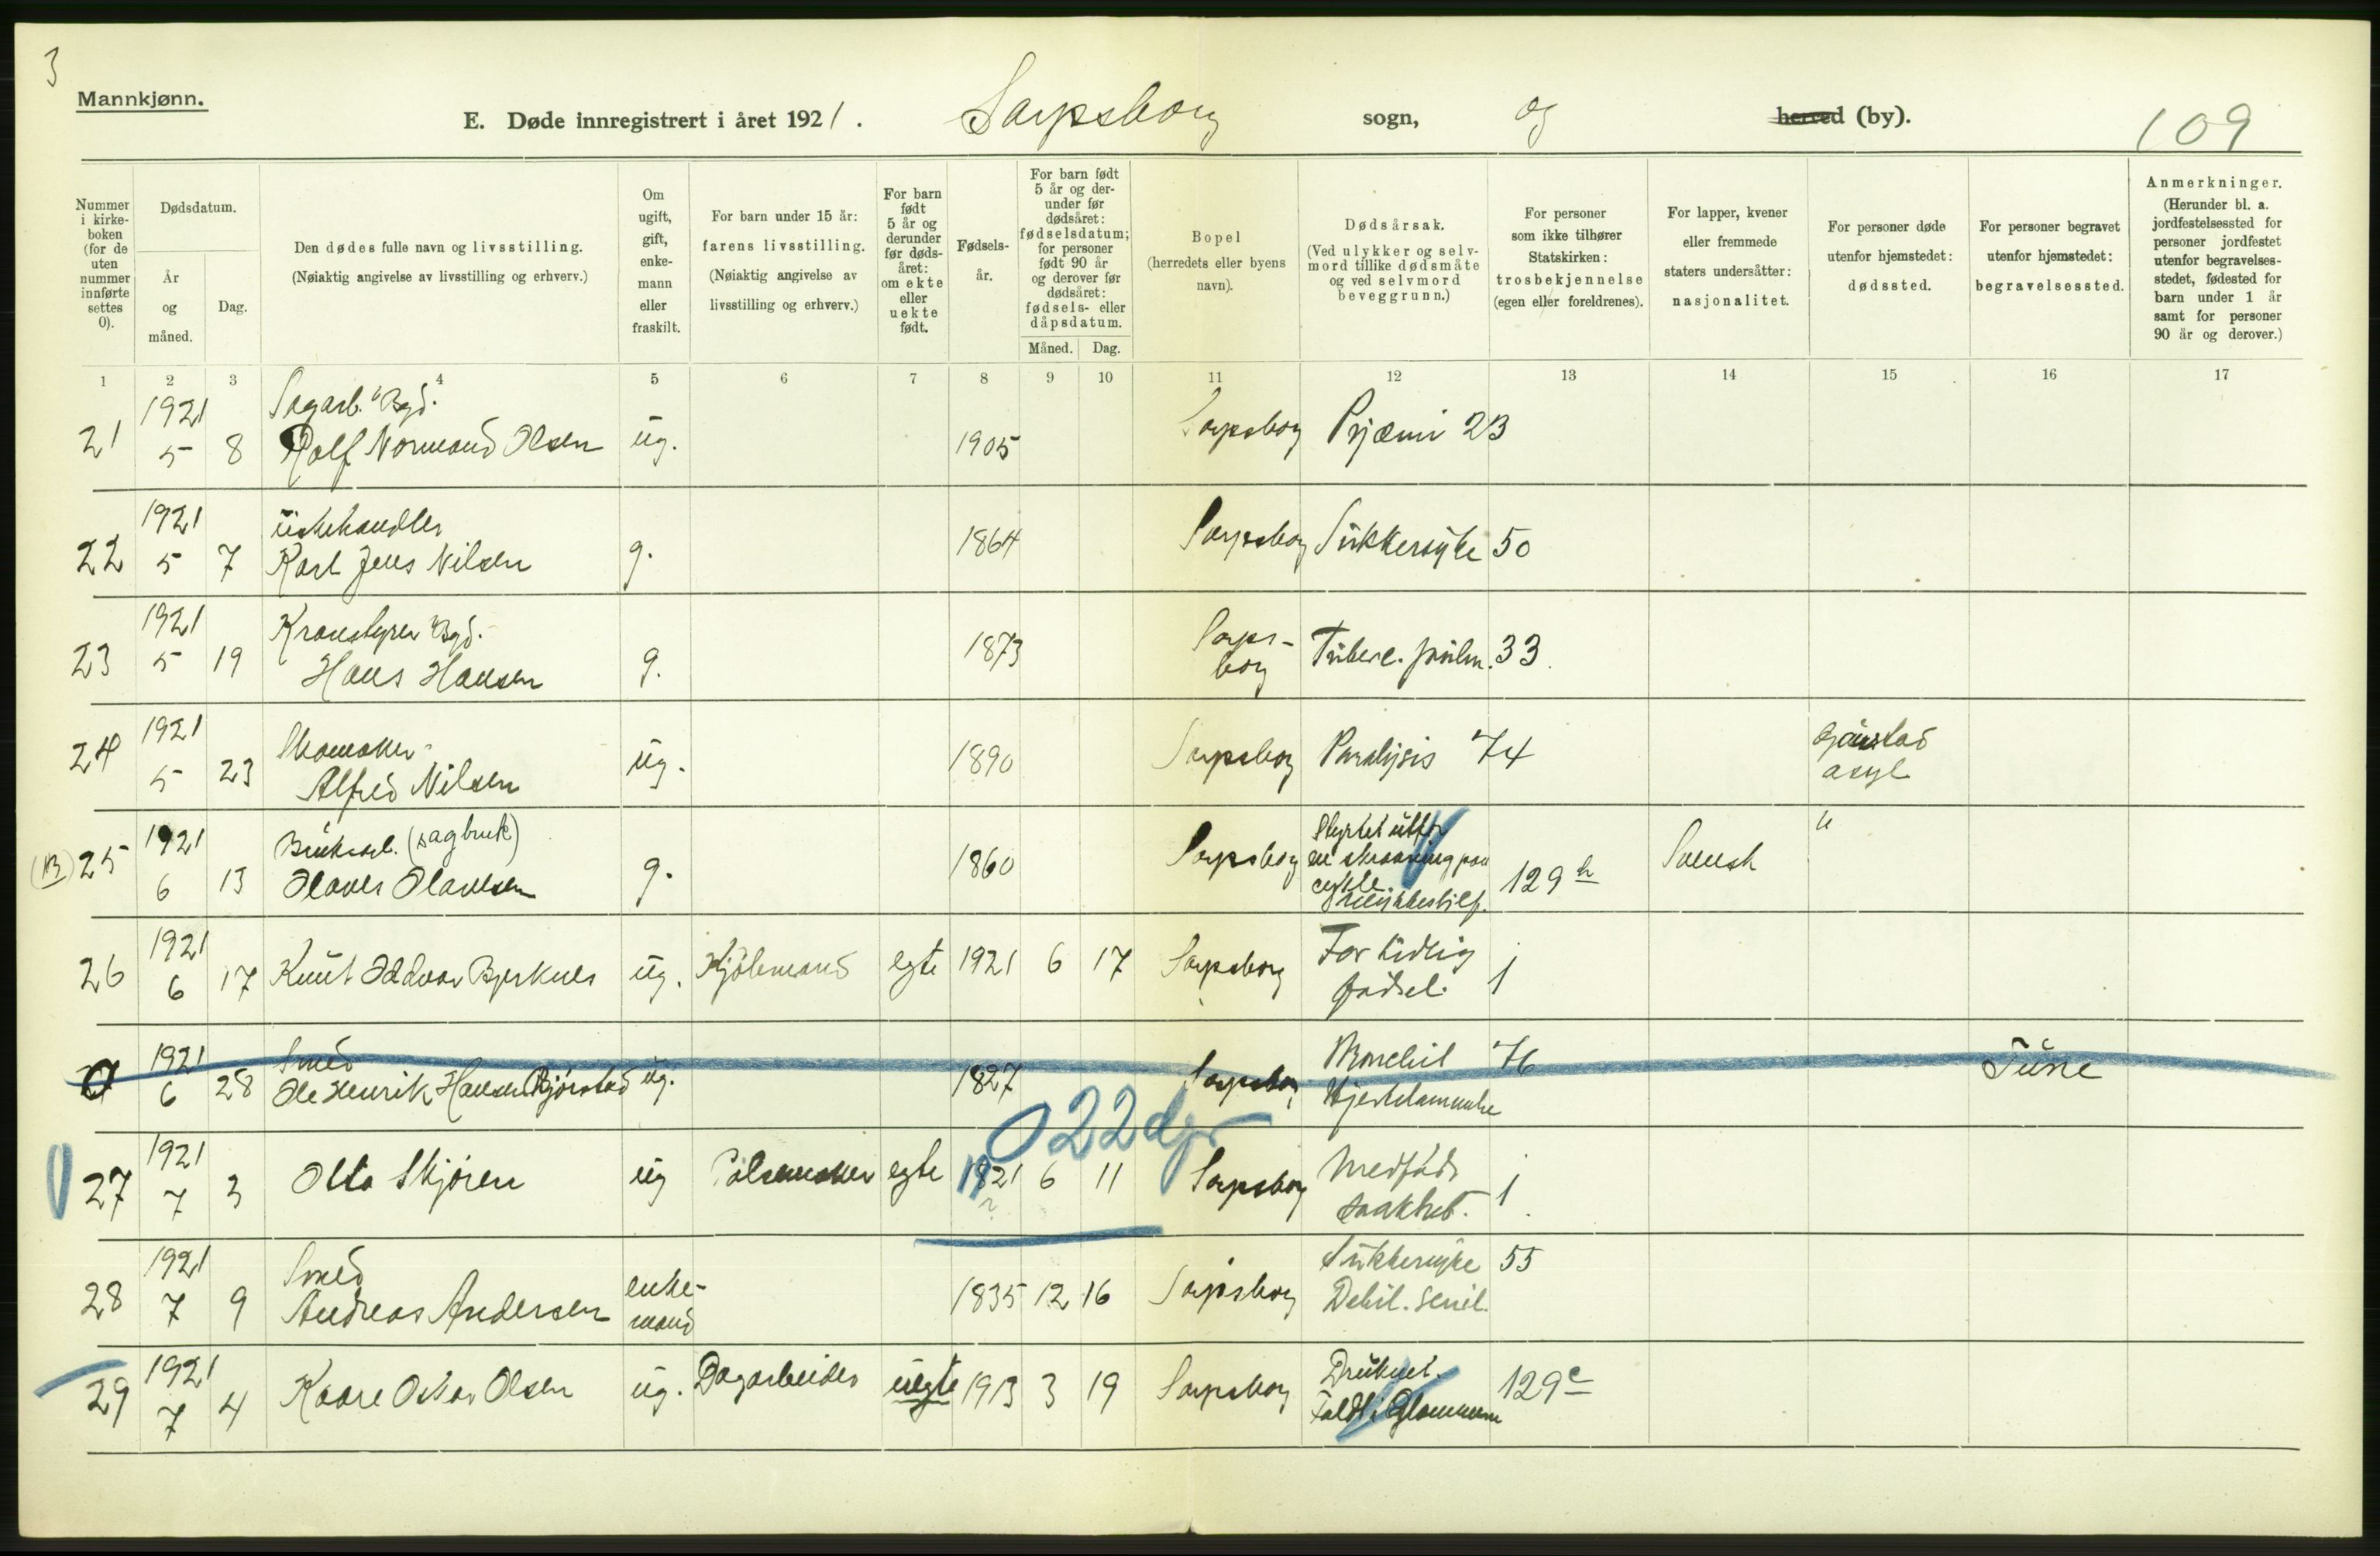 3
Mannkjønn.
E. Døde innregistrert i året 1921. Sarpsborg sogn, og herred (by). 109
Nummer i kirke-boken (for de uten nummer innførte settes 0).
Dødsdatum.
År og måned.
Dag.
Den dødes fulle navn og livsstilling.
(Nøiaktig angivelse av livsstilling og erhverv.)
Om ugift, gift, enke-mann eller fraskilt.
For barn under 15 år: farens livsstilling.
(Nøiaktig angivelse av livsstilling og erhverv.)
For barn født 5 år og derunder før døds-året: om ekte eller uekte født.
Fødsels-år.
For barn født 5 år og der-under før dødsåret: fødselsdatum; for personer født 90 år og derover før dødsåret: fødsels- eller dåpsdatum.
Måned. Dag.
Bopel
(herredets eller byens navn).
Dødsårsak.
(Ved ulykker og selv-mord tillike dødsmåte og ved selvmord beveggrunn.)
For personer som ikke tilhører Statskirken: trosbekjennelse (egen eller foreldrenes).
For lapper, kvener eller fremmede staters undersåtter: nasjonalitet.
For personer døde utenfor hjemstedet: dødssted.
For personer begravet utenfor hjemstedet: begravelsessted.
Anmerkninger.
(Herunder bl. a. jordfestelsessted for personer jordfestet utenfor begravelses-stedet, fødested for barn under 1 år samt for personer 90 år og derover.)
1 2 3 4 5 6 7 8 9 10 11 12 13 14 15 16 17
1921 Sagarb.
21 5 8 Rolf Normand Olsen ug. 1905 Sarpsborg Pyæmi 23
1921
22 5 7 Karl Jens Nilsen g. 1864 Sarpsborg Sukkersyke 50
1921 Kranstyrer Sarps-
23 5 19 Hans Hansen g. 1873 borg Tuberc. pulm. 33
1921 Skomaker Gaustad
24 5 23 Alfred Nilsen ug. 1890 Sarpsborg Paralysis 74 asyl
1921 Bruksarb. (sagbruk) Styrtet utfor
(13) 25 6 13 Olaves Olavesen g. 1860 Sarpsborg en skraaning paa cykle. 129 h Svensk "
1921 For tidlig
26 6 17 Knut Oddvar Bjerknes ug. egte 1921 6 17 Sarpsborg fødsel. 1
1921 Smed 76 Tune
0 6 28 Ole Henrik Hansen Bjørstad ug. 1827 Sarpsborg
0 22 dgr
1921 Medfødt
27 7 3 Otto Skjören ug Pølsemaker egte 1921 6 11 Sarpsborg svakhet. 1
1921 Smed enke- Sukkersyke 55
28 7 9 Andreas Andersen mand 1835 12 16 Sarpsborg Debil. senil.
1921 Druknet.
29 7 4 Kaare Oskar Olsen ug. Dagarbeider uegte 1913 3 19 Sarpsborg Faldt i Glommen 129 c